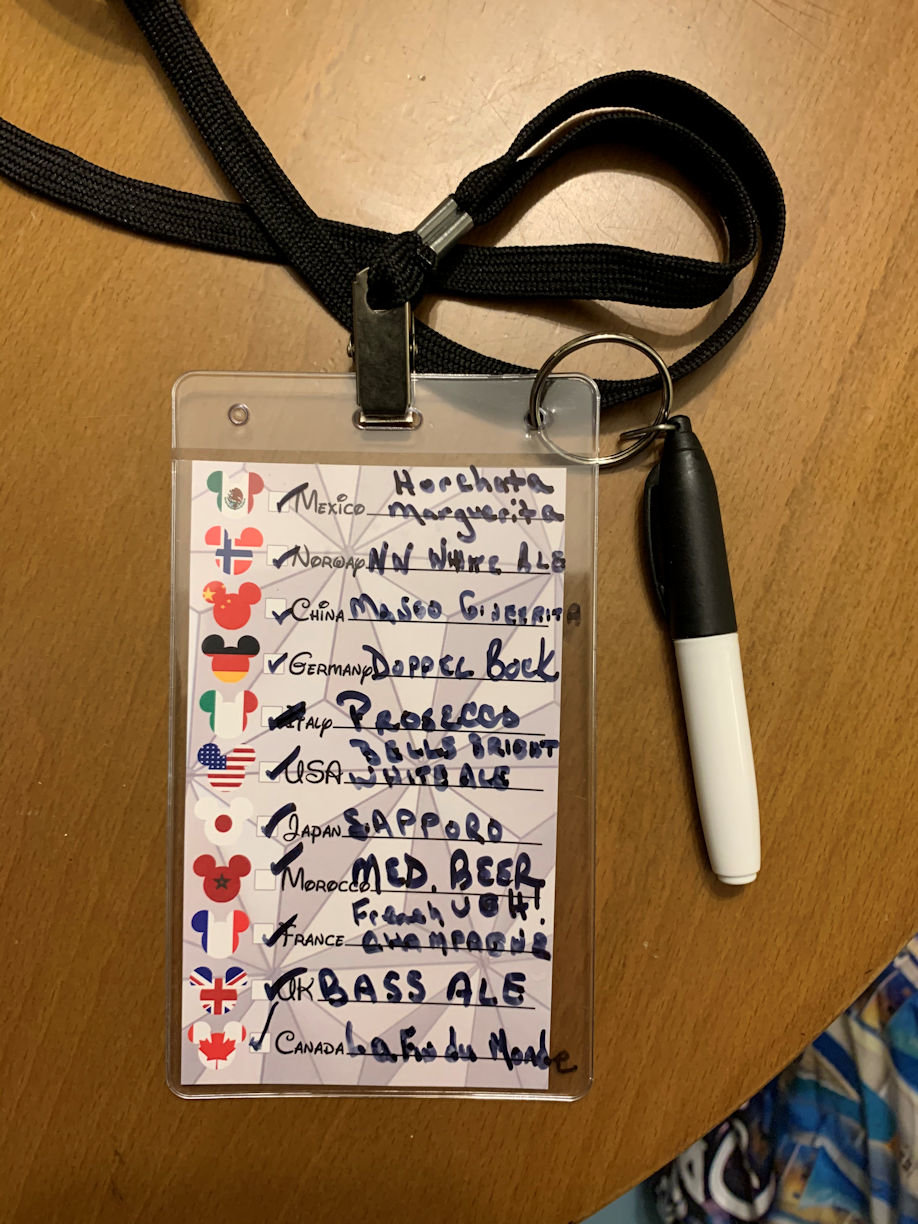 Horchata
Mexico Marguerita
Norway NN White Ale
China Mango Gingerita
Germany Doppel Bock
Italy Prosecco
Bells Bright
USA White Ale
Japan Sapporo
Morocco MED. BEER
French UGH!
France Champagne
UK BASS ALE
Canada La Fin du Monde